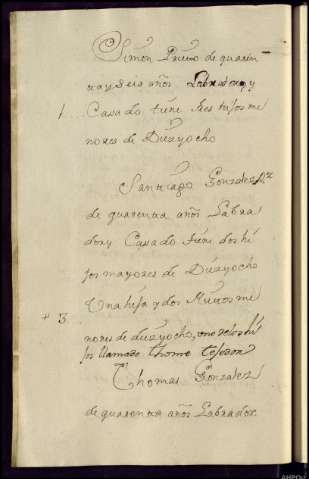 Simon Prieto de quaren
ta y seis años Labrador, y
1.. Casado tiene tres hijos me
nores de Diez yocho
Santiago Gonzalez
de quarenta años Labra
dor y Casado tiene dos hi
jos mayores de Diez yocho
Una hija y dos Nietos me
+ 3. nores de diez yocho, uno de los hi
jos llamado Thome
Thomas Gonzalez
de quarenta años Labrador